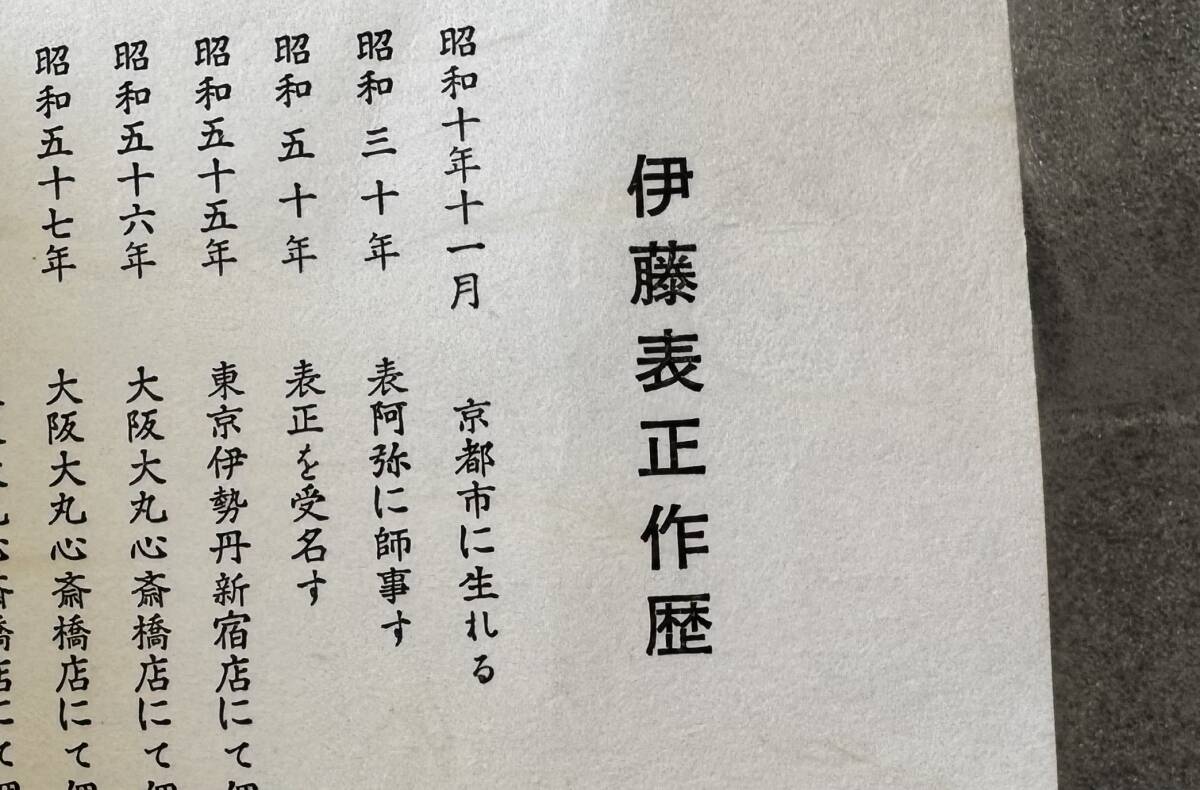 伊藤表正作歴
昭和十年十一月 京都市に生れる
昭和三十年 表阿弥に師事す
昭和五十年 表正を受名す
昭和五十五年 東京伊勢丹新宿店にて個
昭和五十六年 大阪大丸心斎橋店にて個
昭和五十七年 大阪大丸心斎橋店にて個